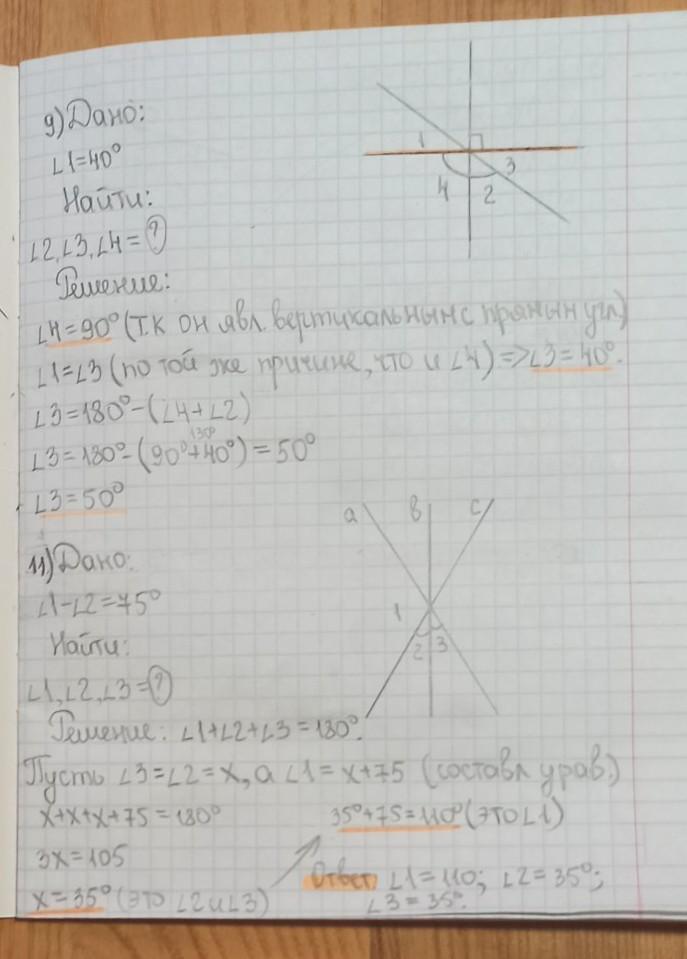 9) Дано:
∠1=40°
Найти:
∠2,∠3,∠4=?
Решение:
∠4=90° (т.к он явл. вертикальным с прямым угл.)
∠1=∠3 (по той же причине, что и ∠4) => ∠3=40°.
∠3=180°-(∠4+∠2)
130°
∠3=180°-(90°+40°)=50°
∠3=50°
1
3
4
2
11) Дано:
∠1-∠2=75°
Найти:
∠1,∠2,∠3=?
a в c
1
2 3
Решение: ∠1+∠2+∠3=180°.
Пусть ∠3=∠2=x, а ∠1=x+75 (составл урав.)
x+x+x+75=180°
35°+75=110° (это ∠1)
3x=105
x=35° (это ∠2 и ∠3)
Ответ: ∠1=110; ∠2=35°;
∠3=35°.